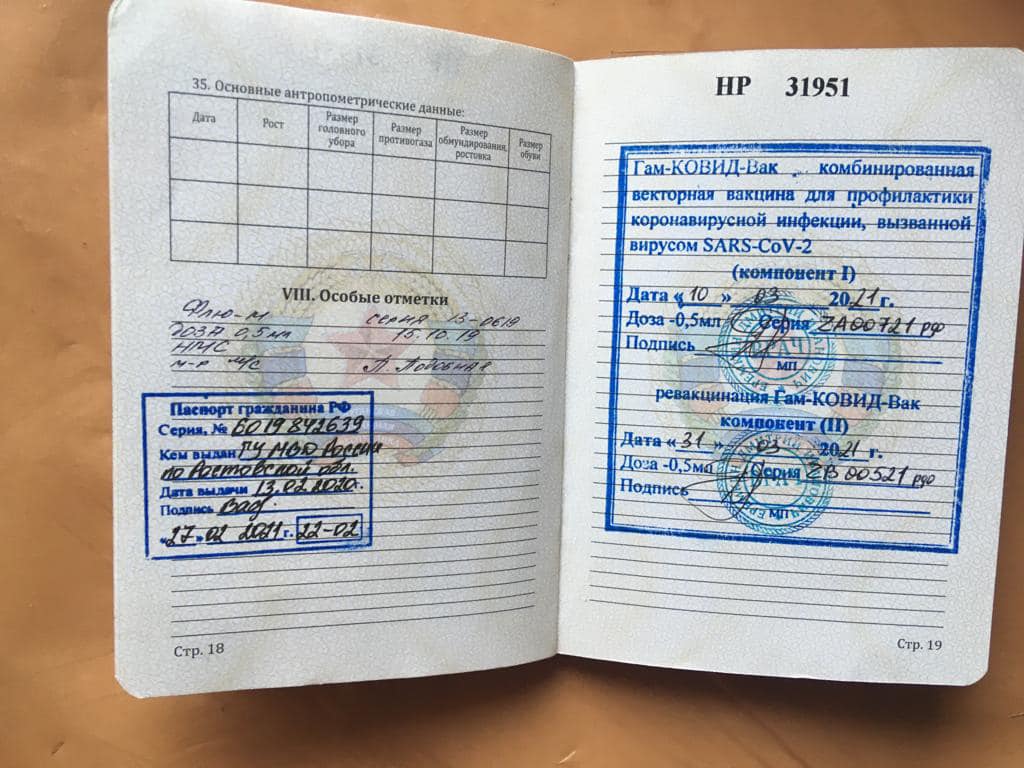 35. Основные антропометрические данные:
Дата
Рост
Размер головного убора
Размер противогаза
Размер обмундирования, ростовка
Размер обуви
VIII. Особые отметки
Флю-М серия 13-0619
доза 0,5 мл 15.10.19
НМС
м-р м/с
Паспорт гражданина РФ
Серия, № 6019 842639
Кем выдан ГУ МВД России
по Ростовской обл.
Дата выдачи 13.02.2020г.
Подпись
«27» 02 2021 г. 22-02
Стр. 18
НР 31951
Гам-КОВИД-Вак , комбинированная
векторная вакцина для профилактики
коронавирусной инфекции, вызванной
вирусом SARS-CoV-2
(компонент I)
Дата «10» 03 2021 г.
Доза -0,5мл Серия ZA00721 рдо
Подпись
МП
ревакцинация Гам-КОВИД-Вак
компонент (II)
Дата «31» 03 2021 г.
Доза -0,5мл Серия ZB00521 рдо
Подпись
МП
Стр. 19